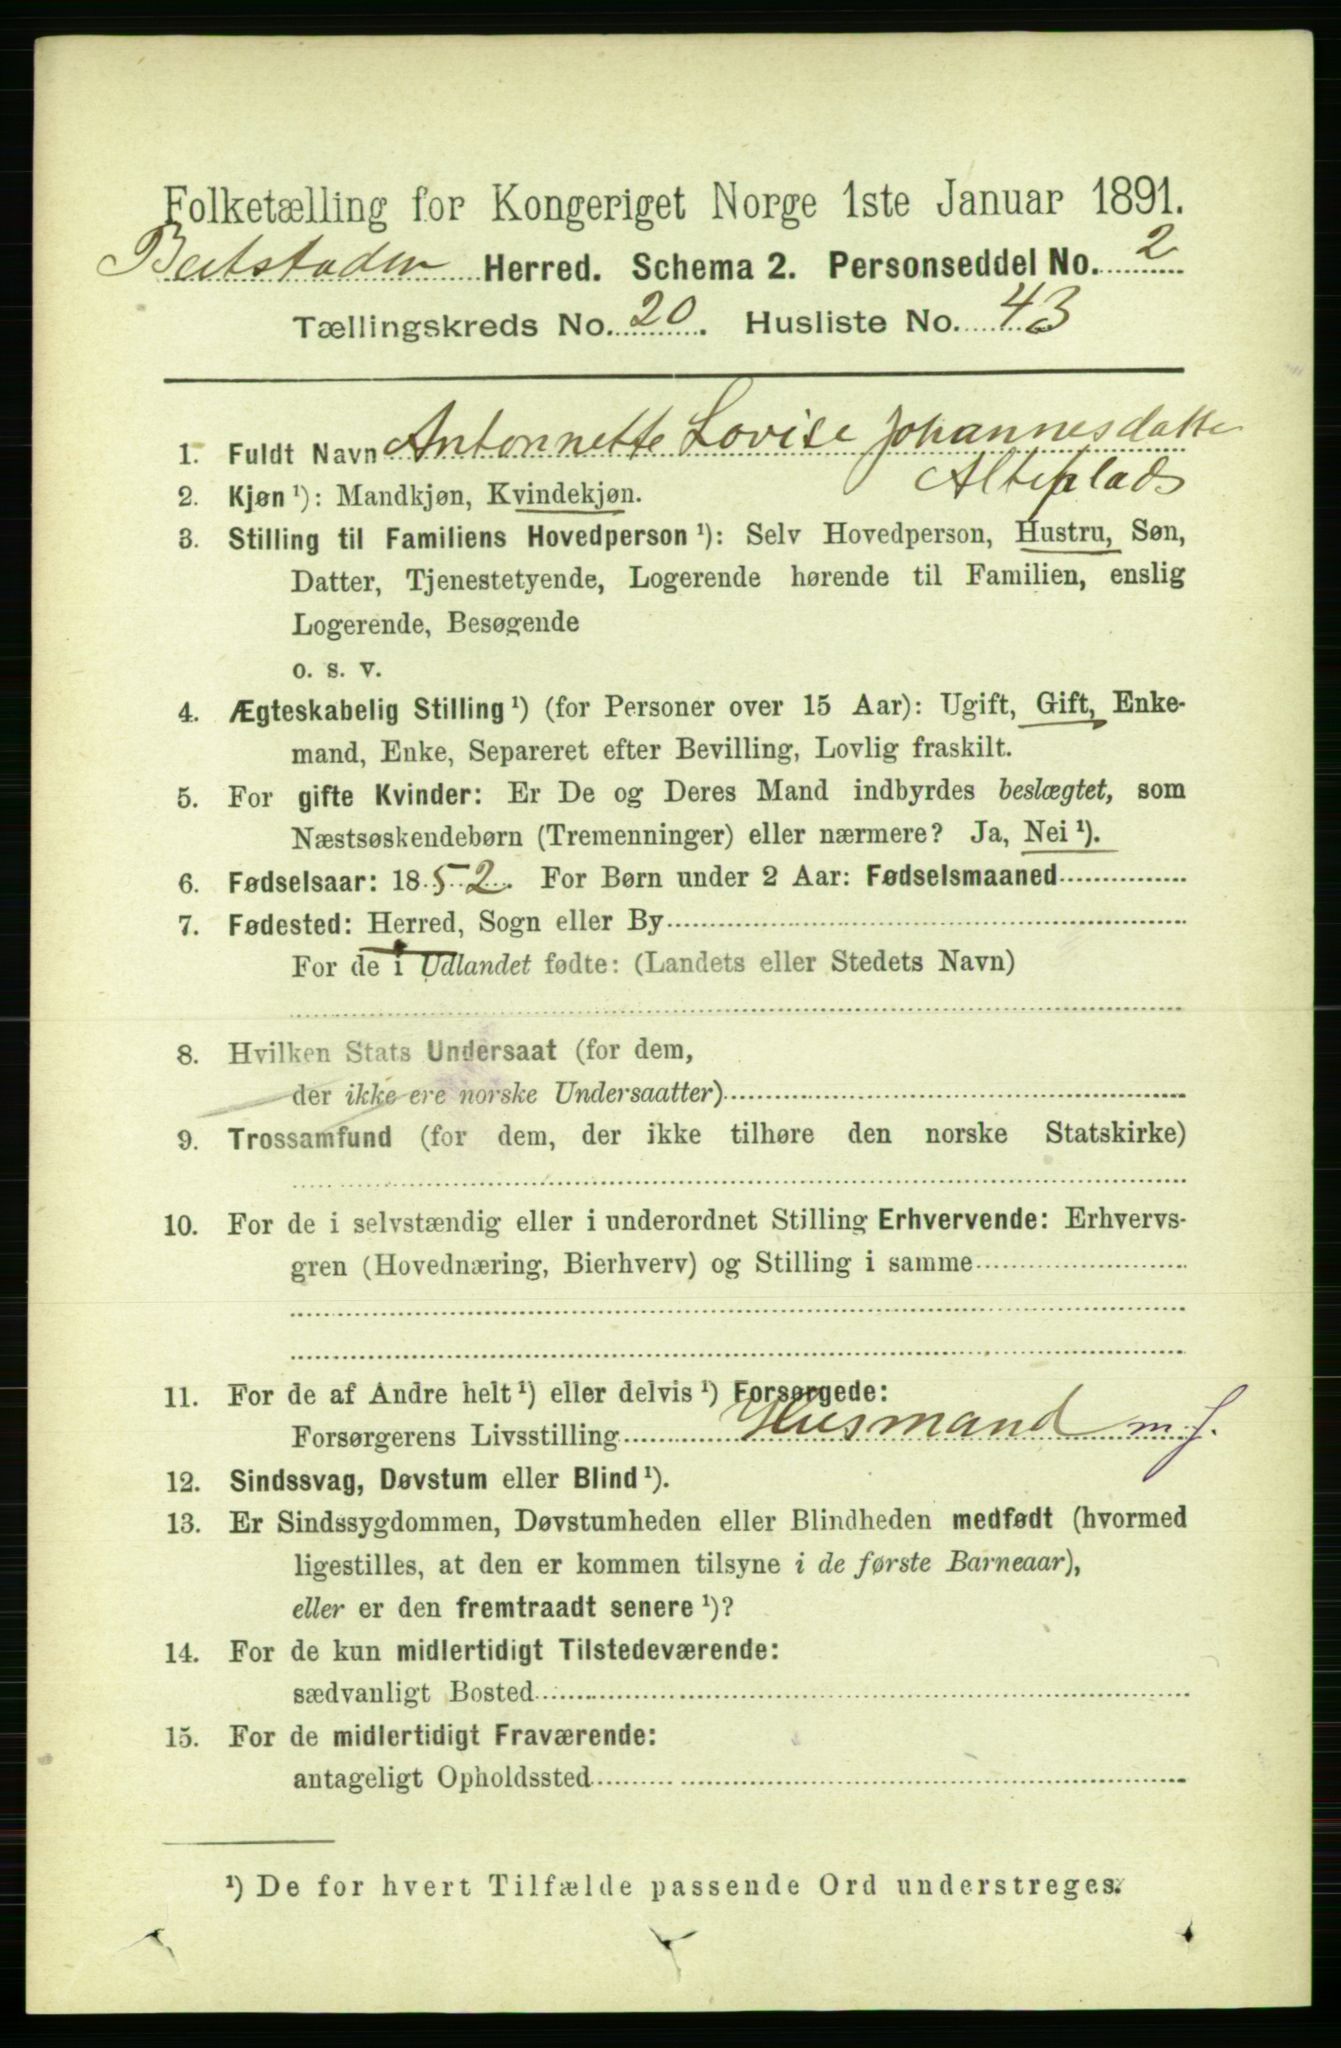 Folketælling for Kongeriget Norge 1ste Januar 1891.
Beitstaden Herred. Schema 2. Personseddel No. 2
Tællingskreds No. 20. Husliste No. 43
1. Fuldt Navn Antonnette Lovise Johannesdatter
Alteplads
2. Kjøn ¹): Mandkjøn, Kvindekjøn.
3. Stilling til Familiens Hovedperson ¹): Selv Hovedperson, Hustru, Søn,
Datter, Tjenestetyende, Logerende hørende til Familien, enslig
Logerende, Besøgende
o. s. v.
4. Ægteskabelig Stilling ¹) (for Personer over 15 Aar): Ugift, Gift, Enke-
mand, Enke, Separeret efter Bevilling, Lovlig fraskilt.
5. For gifte Kvinder: Er De og Deres Mand indbyrdes beslægtet, som
Næstsøskendebørn (Tremenninger) eller nærmere? Ja, Nei ¹).
6. Fødselsaar: 1852. For Børn under 2 Aar: Fødselsmaaned
7. Fødested: Herred, Sogn eller By
For de i Udlandet fødte: (Landets eller Stedets Navn)
8. Hvilken Stats Undersaat (for dem,
der ikke ere norske Undersaatter)
9. Trossamfund (for dem, der ikke tilhøre den norske Statskirke)
10. For de i selvstændig eller i underordnet Stilling Erhvervende: Erhvervs-
gren (Hovednæring, Bierhverv) og Stilling i samme
11. For de af Andre helt ¹) eller delvis ¹) Forsørgede:
Forsørgerens Livsstilling Husmand m. j.
12. Sindssvag, Døvstum eller Blind ¹).
13. Er Sindssygdommen, Døvstumheden eller Blindheden medfødt (hvormed
ligestilles, at den er kommen tilsyne i de første Barneaar),
eller er den fremtraadt senere ¹)?
14. For de kun midlertidigt Tilstedeværende:
sædvanligt Bosted
15. For de midlertidigt Fraværende:
antageligt Opholdssted
¹) De for hvert Tilfælde passende Ord understreges.